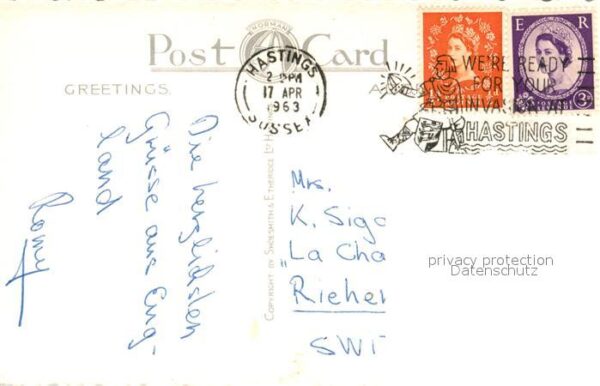 NORMAN
Post Card
GREETINGS.
A
HASTINGS
2-PM
17 APR
1963
SUSSEX
WE'RE READY
FOR YOUR
INVASION AT
HASTINGS
E R
3D
Die herzlichsten
Grüsse aus Eng-
land
Romy
COPYRIGHT BY SHOESMITH & ETHERIDGE LTD HASTINGS
Mrs.
K. Sig
"La Cha
Riehe
SWI
privacy protection
Datenschutz